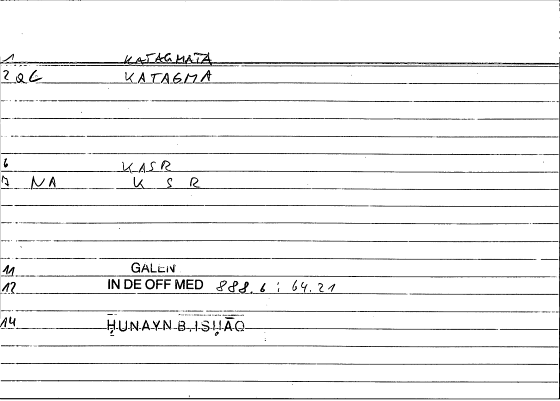 1 KATAGMATA
2 QG KATAGMA
6 KASR
7 NA K S R
11 GALEN
12 IN DE OFF MED 888.6 : 64.21
14 ḤUNAYN B. ISḤĀQ